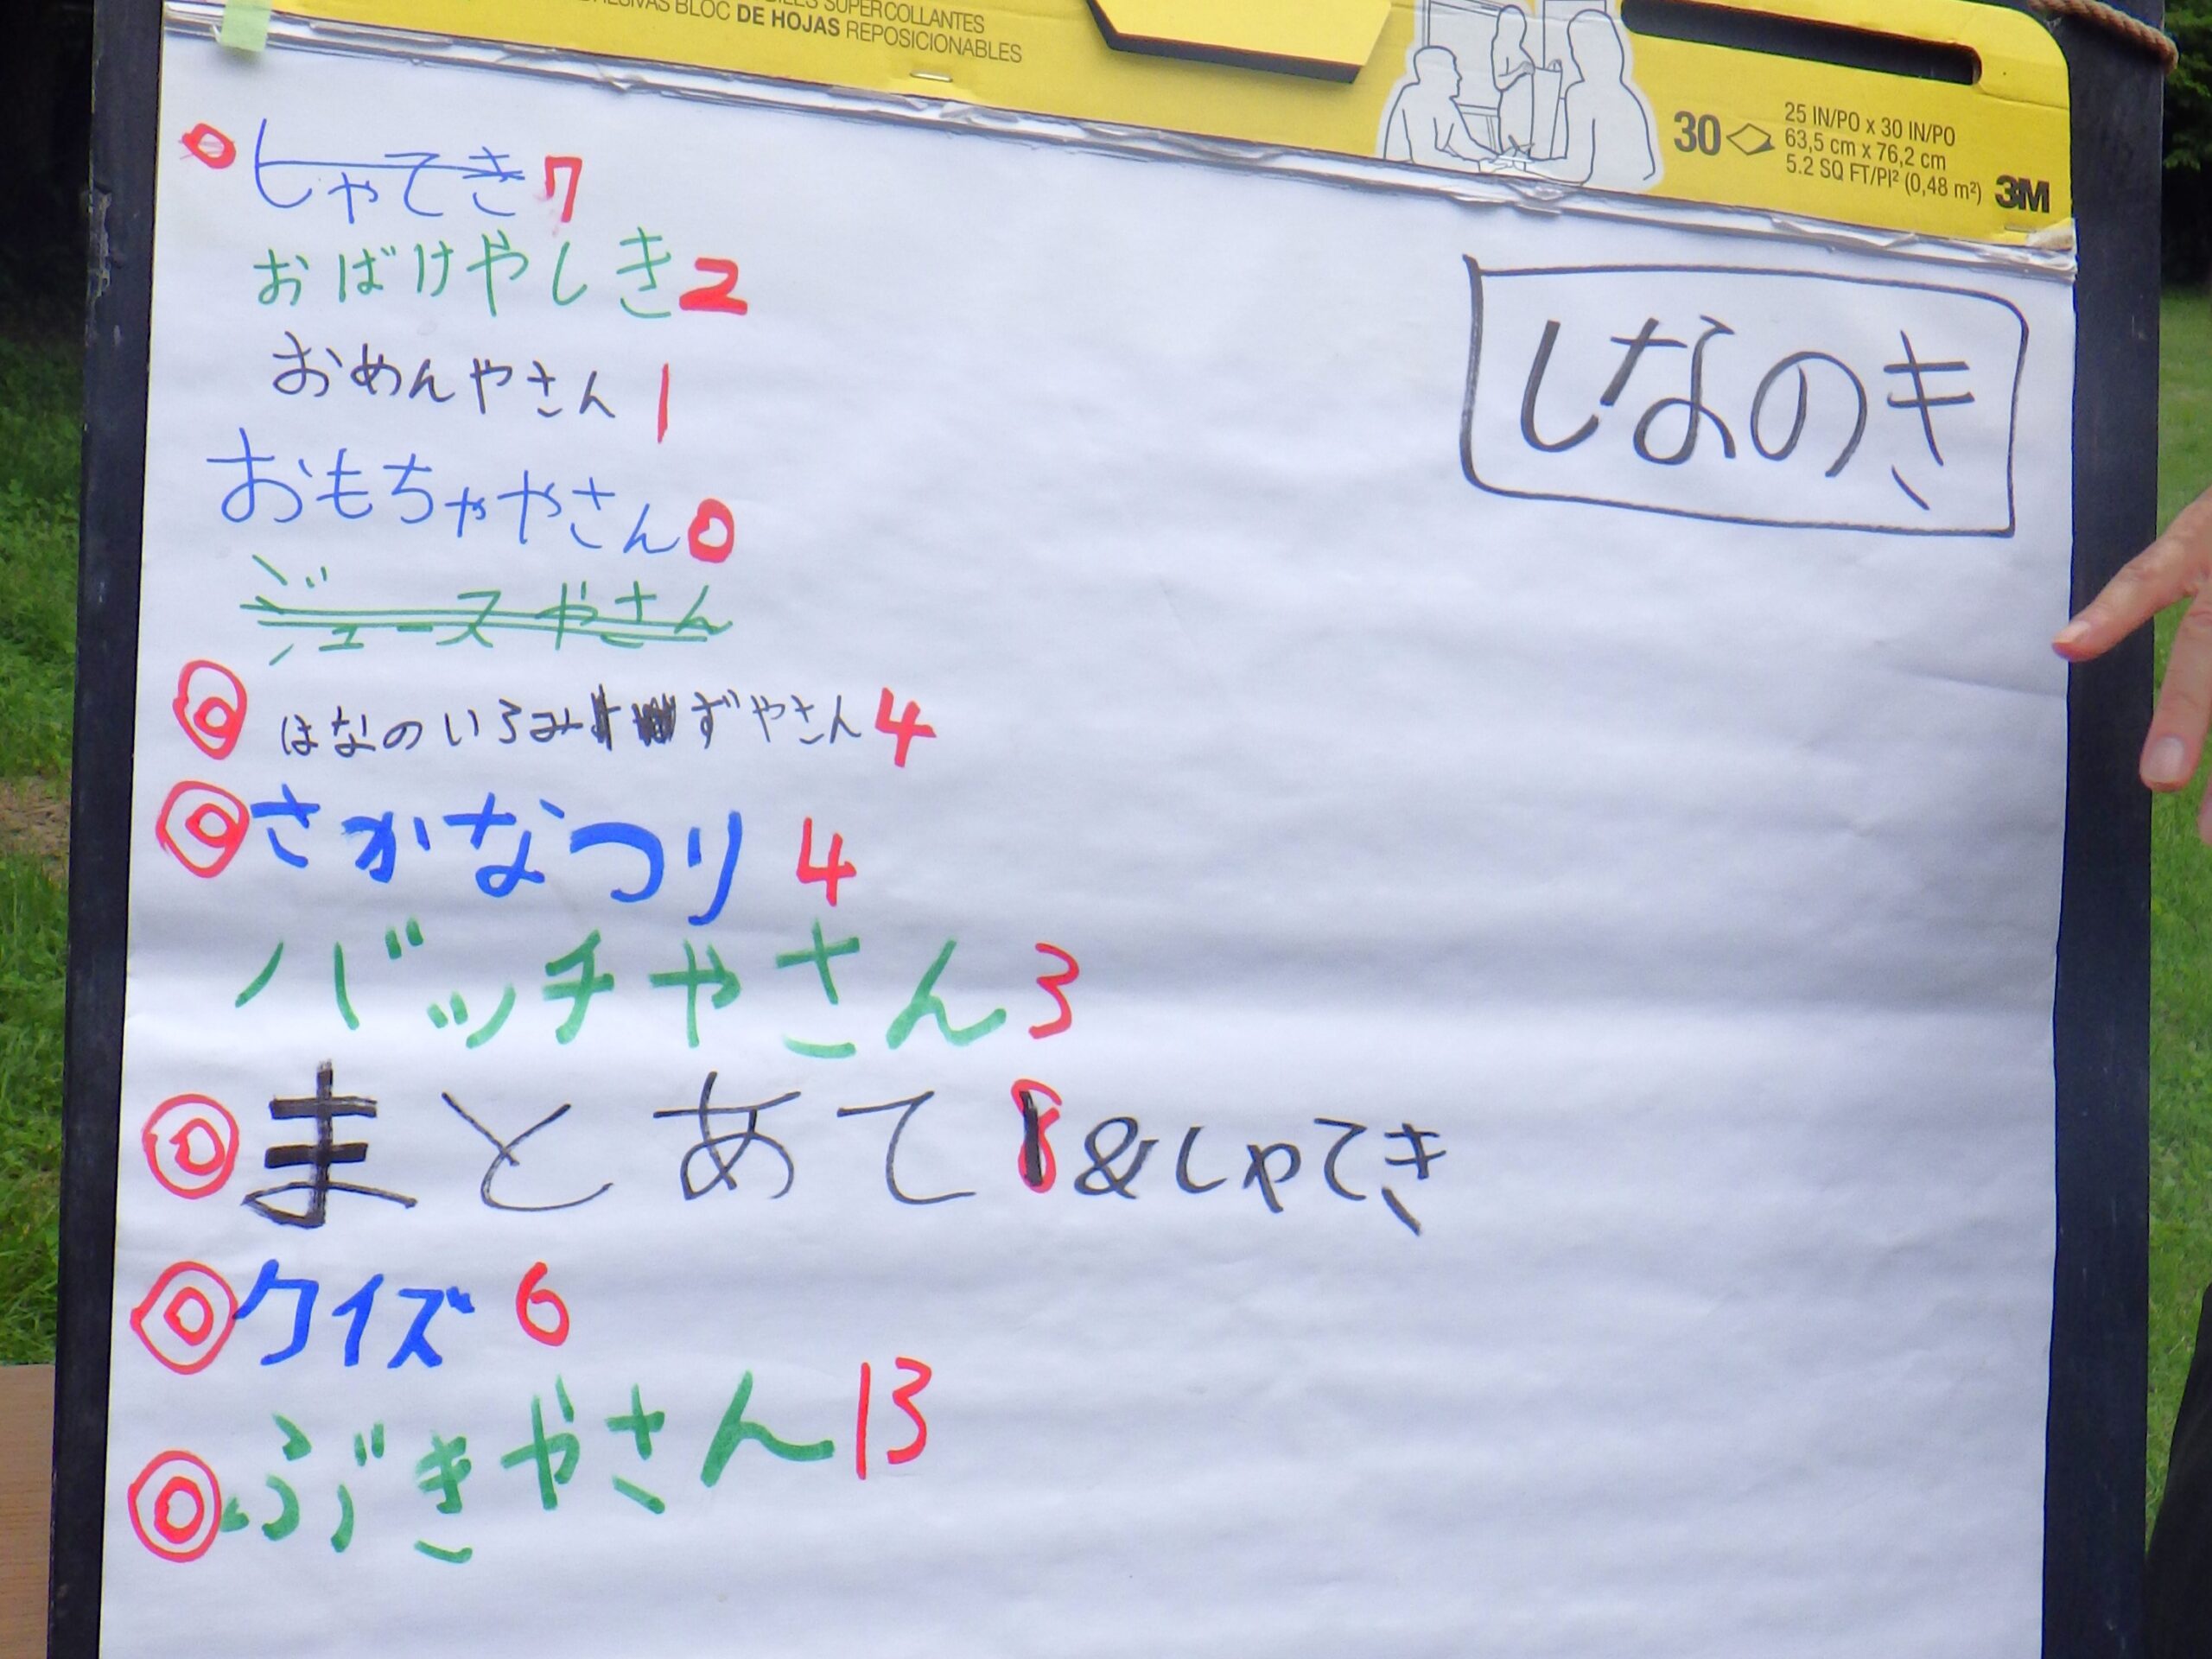 SUPERCOLLANTES
BLOC DE HOJAS REPOSICIONABLES
30
25 IN/PO x 30 IN/PO
63,5 cm x 76,2 cm
5.2 SQ FT/PI² (0,48 m²)
3M
しなのき
しゃてき 7
おばけやしき 2
おめんやさん 1
おもちゃやさん 0
ジュースやさん
はなのいろみずやさん 4
さかなつり 4
バッチやさん 3
まとあて 8 &しゃてき
クイズ 6
ぶきやさん 13